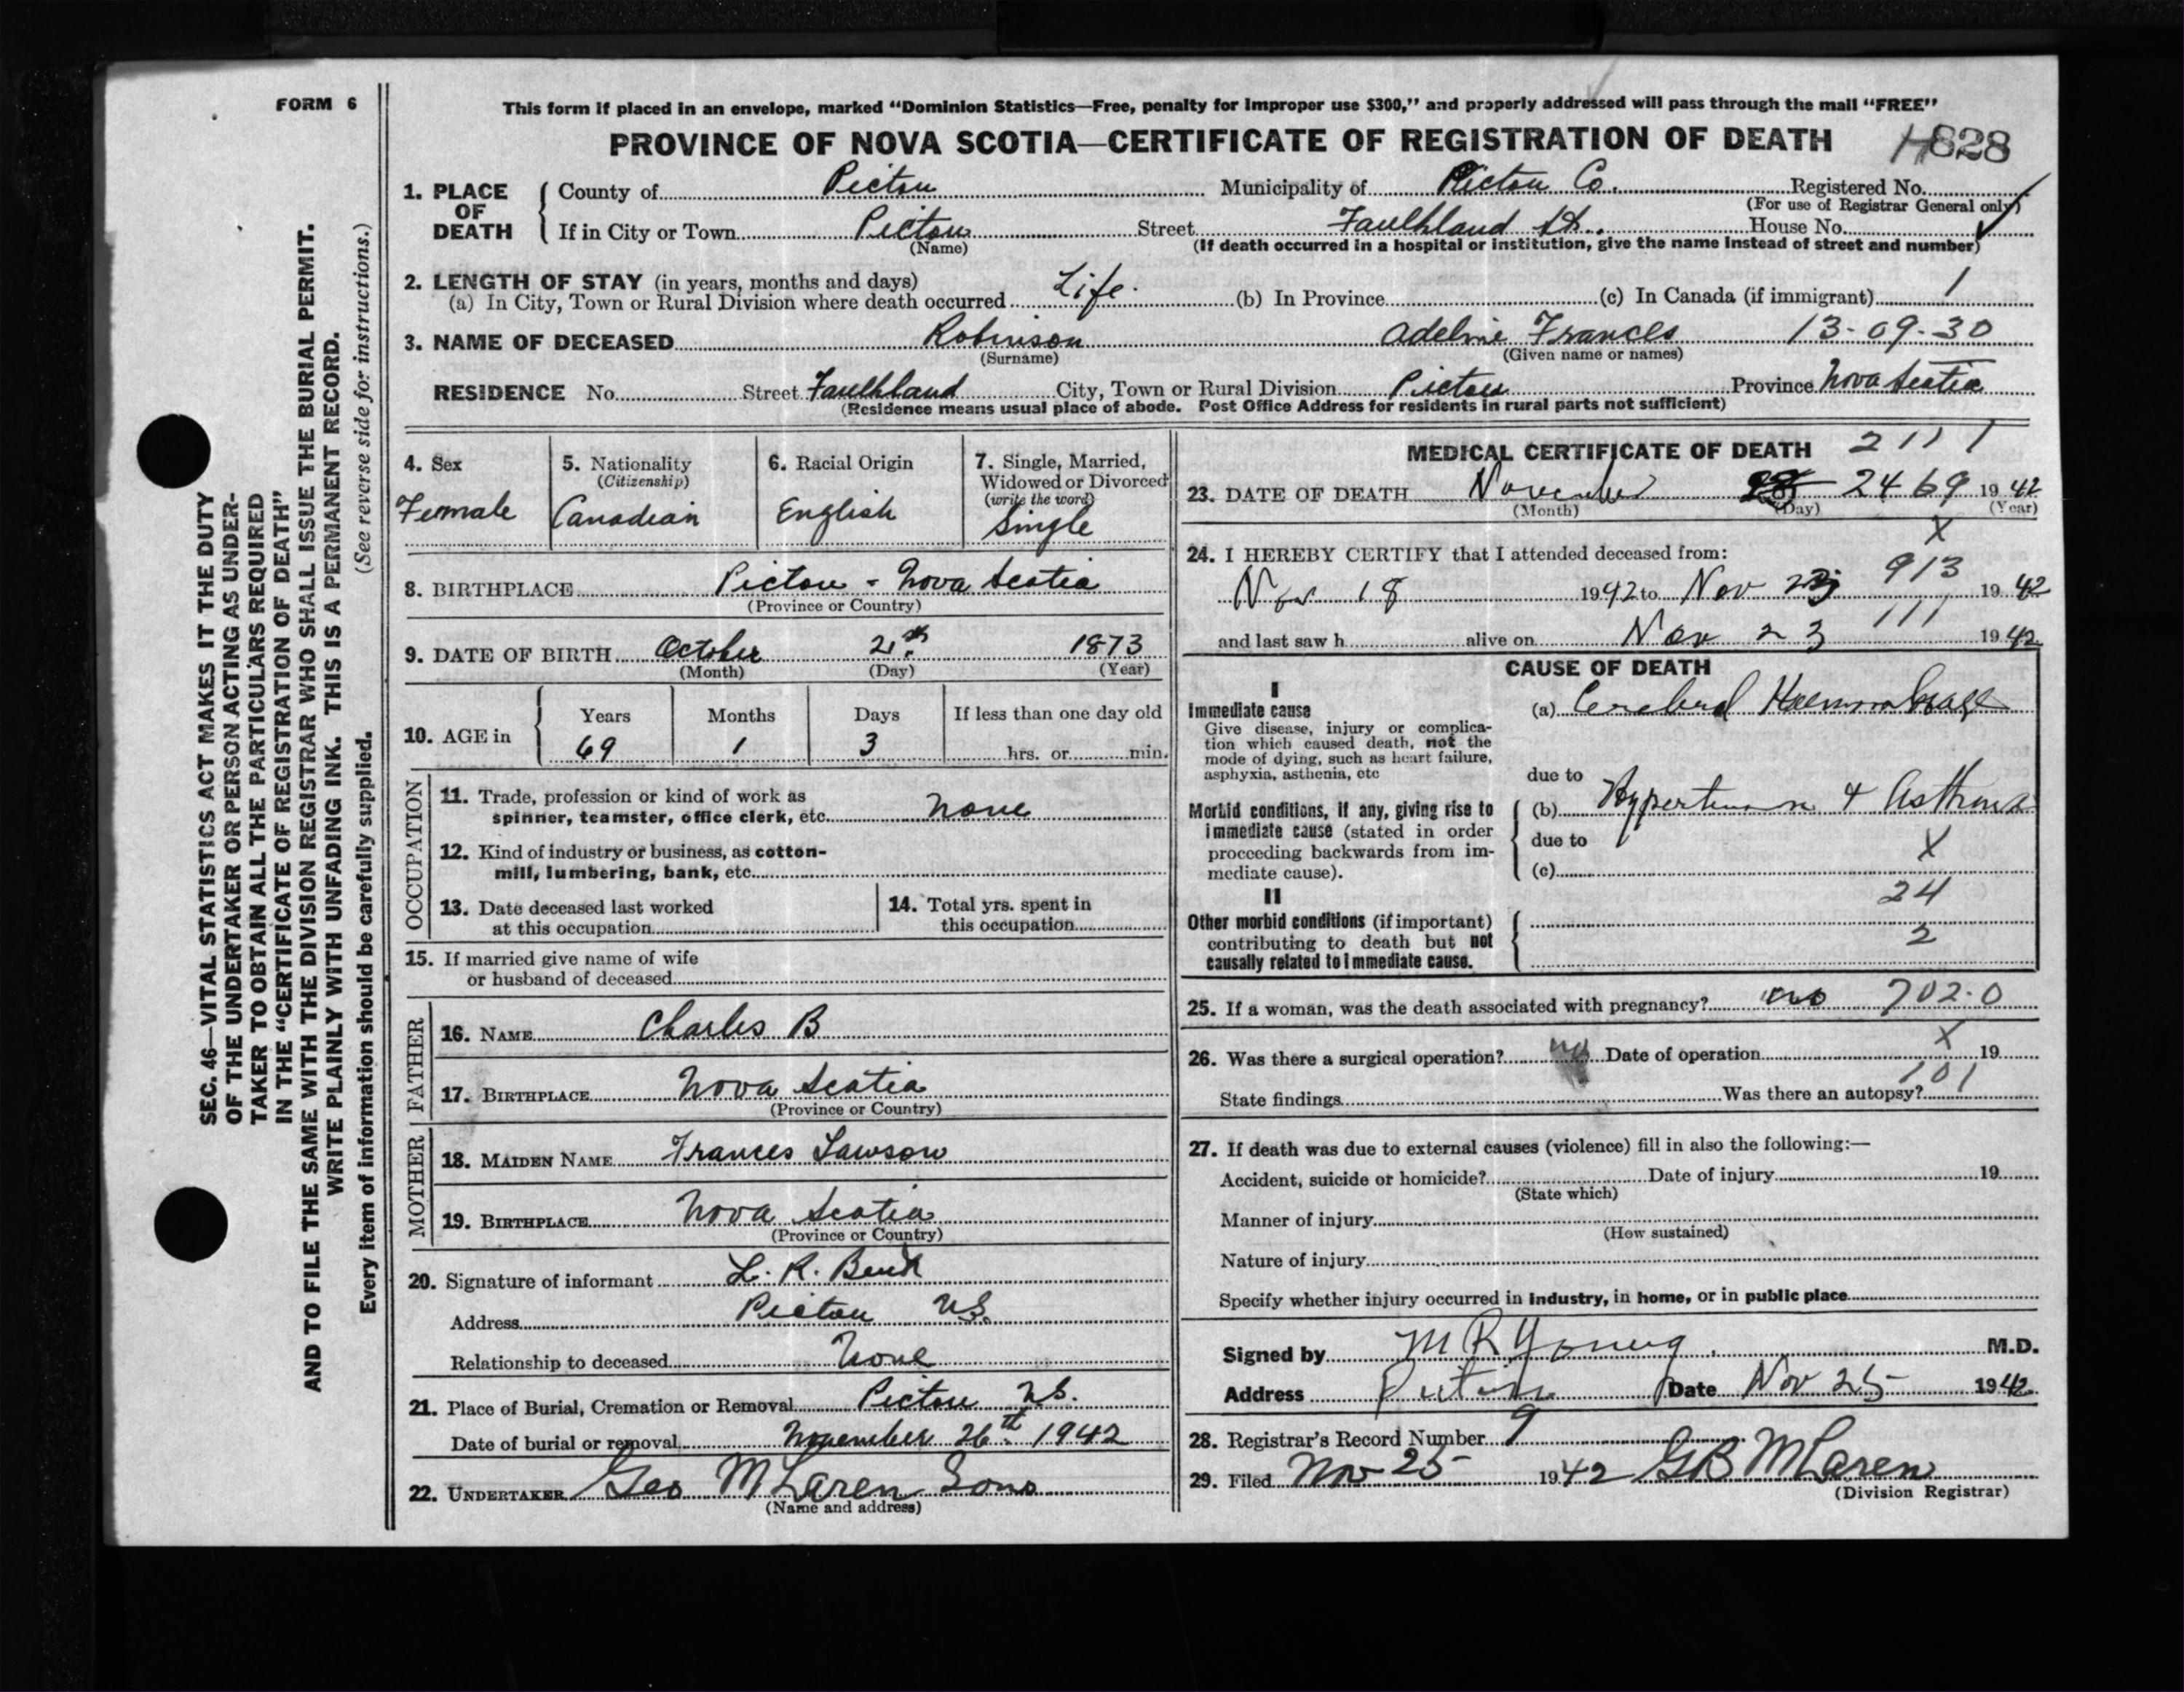 FORM 6
This form if placed in an envelope, marked "Dominion Statistics—Free, penalty for improper use $300," and properly addressed will pass through the mail "FREE"
PROVINCE OF NOVA SCOTIA—CERTIFICATE OF REGISTRATION OF DEATH
828
1. PLACE OF DEATH County of Pictou Municipality of Pictou Co. Registered No.
(For use of Registrar General only)
If in City or Town Pictou Street Faulkland St. House No.
(Name) (If death occurred in a hospital or institution, give the name instead of street and number)
2. LENGTH OF STAY (in years, months and days)
(a) In City, Town or Rural Division where death occurred Life. (b) In Province (c) In Canada (if immigrant) 1
3. NAME OF DECEASED Robinson Adeline Frances 13-09-30
(Surname) (Given name or names)
RESIDENCE No. Street Faulkland City, Town or Rural Division Pictou Province Nova Scotia
(Residence means usual place of abode. Post Office Address for residents in rural parts not sufficient)
4. Sex
Female
5. Nationality
(Citizenship)
Canadian
6. Racial Origin
English
7. Single, Married, Widowed or Divorced
(write the word)
Single
8. BIRTHPLACE Pictou - Nova Scotia
(Province or Country)
9. DATE OF BIRTH October 21st 1873
(Month) (Day) (Year)
10. AGE in Years Months Days If less than one day old
69 1 3 hrs. or min.
OCCUPATION
11. Trade, profession or kind of work as
spinner, teamster, office clerk, etc. None
12. Kind of industry or business, as cotton-
mill, lumbering, bank, etc.
13. Date deceased last worked
at this occupation
14. Total yrs. spent in
this occupation
15. If married give name of wife
or husband of deceased
FATHER
16. NAME Charles B
17. BIRTHPLACE Nova Scotia
(Province or Country)
MOTHER
18. MAIDEN NAME Frances Lawson
19. BIRTHPLACE Nova Scotia
(Province or Country)
20. Signature of informant L. R.
Address Pictou N.S.
Relationship to deceased None
21. Place of Burial, Cremation or Removal Pictou N.S.
Date of burial or removal November 26th 1942
22. UNDERTAKER Geo McLaren Sons
(Name and address)
MEDICAL CERTIFICATE OF DEATH 2111
23. DATE OF DEATH November 24 69 1942
(Month) (Day) (Year)
X
24. I HEREBY CERTIFY that I attended deceased from:
913
Nov 18 1942 to Nov 23 1942
111
and last saw h alive on Nov 23 1942
CAUSE OF DEATH
I
Immediate cause
Give disease, injury or complica-
tion which caused death, not the
mode of dying, such as heart failure,
asphyxia, asthenia, etc
(a) Cerebral Haemorrhage
due to
Morbid conditions, if any, giving rise to
immediate cause (stated in order
proceeding backwards from im-
mediate cause).
(b) Hypertension & Asthma
due to
X
(c)
II
24
Other morbid conditions (if important)
contributing to death but not
causally related to immediate cause.
2
25. If a woman, was the death associated with pregnancy? no 702.0
X
26. Was there a surgical operation? no Date of operation 19
101
State findings Was there an autopsy?
27. If death was due to external causes (violence) fill in also the following:—
Accident, suicide or homicide? Date of injury 19
(State which)
Manner of injury
(How sustained)
Nature of injury
Specify whether injury occurred in industry, in home, or in public place
Signed by M R Young. M.D.
Address Pictou Date Nov 25 1942
28. Registrar's Record Number 9
29. Filed Nov 25 1942 GB McLaren
(Division Registrar)
SEC. 46—VITAL STATISTICS ACT MAKES IT THE DUTY
OF THE UNDERTAKER OR PERSON ACTING AS UNDER-
TAKER TO OBTAIN ALL THE PARTICULARS REQUIRED
IN THE "CERTIFICATE OF REGISTRATION OF DEATH"
AND TO FILE THE SAME WITH THE DIVISION REGISTRAR WHO SHALL ISSUE THE BURIAL PERMIT.
WRITE PLAINLY WITH UNFADING INK. THIS IS A PERMANENT RECORD.
Every item of information should be carefully supplied. (See reverse side for instructions.)